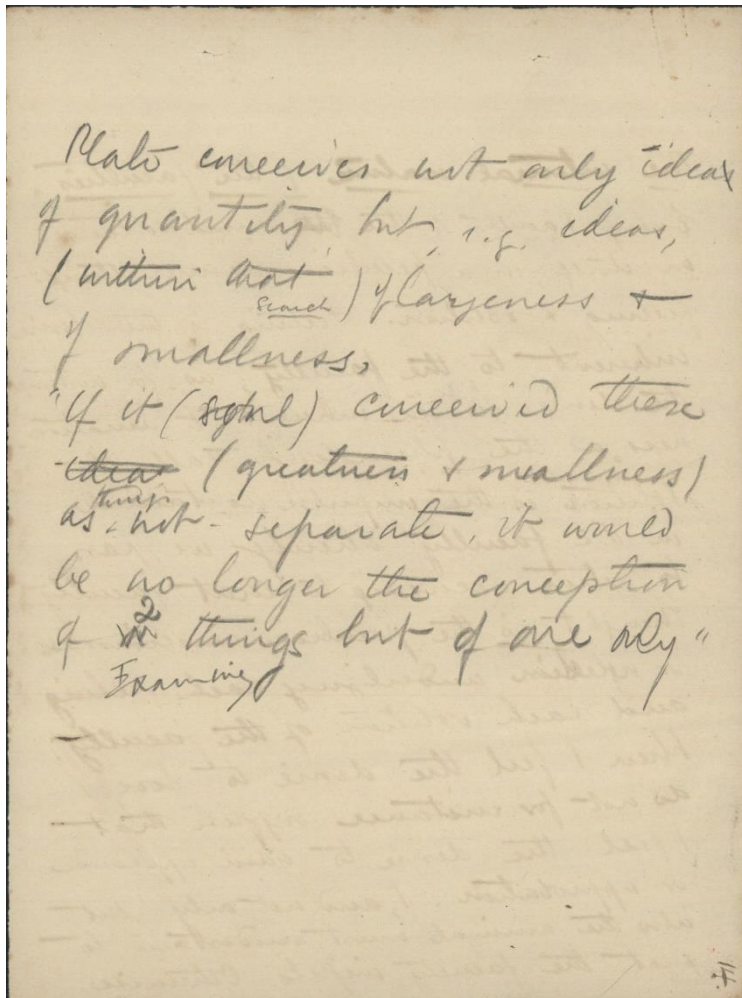 Plato conceives not only ideas
of quantity, but, e.g. ideas,
(within that ) of largeness &
search
of smallness,
"If it (soul) conceived these
ideas (greatness & smallness)
things
as not separate, it would
be no longer the conception
of 2 things but of one only"
Examining